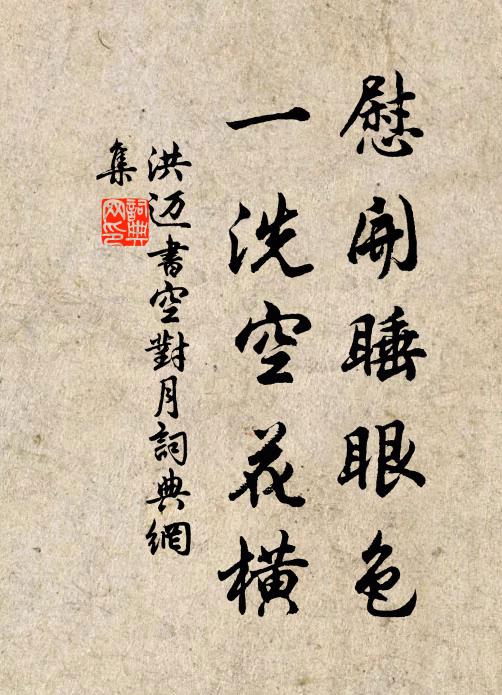 慰開睡眼色
一洗空花橫
洪迈書空對月詞典網
集
詞典
网印